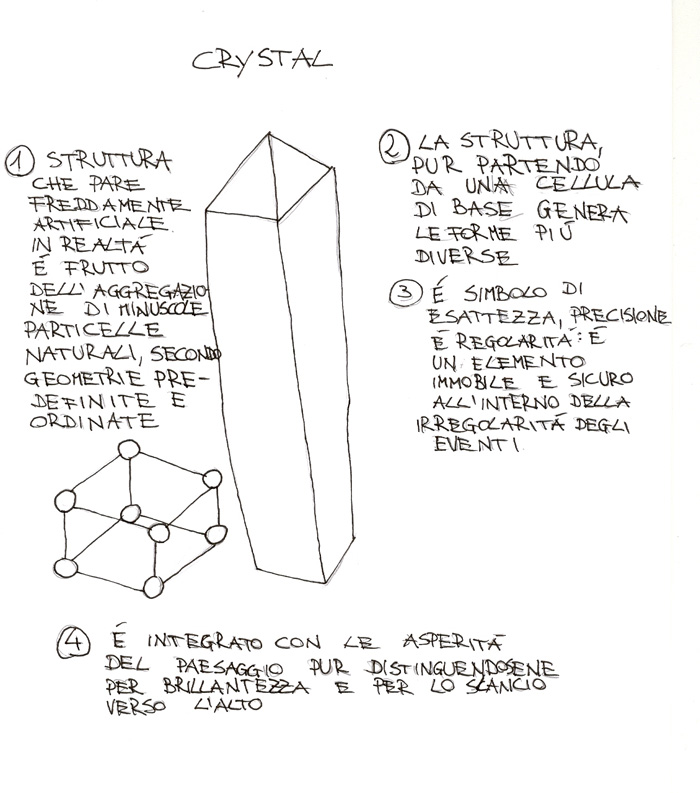 CRYSTAL
1 STRUTTURA
CHE PARE
FREDDAMENTE
ARTIFICIALE
IN REALTÁ
É FRUTTO
DELL'AGGREGAZIO
NE DI MINUSCOLE
PARTICELLE
NATURALI, SECONDO
GEOMETRIE PRE-
DEFINITE E
ORDINATE
2 LA STRUTTURA,
PUR PARTENDO
DA UNA CELLULA
DI BASE GENERA
LE FORME PIÚ
DIVERSE
3 É SIMBOLO DI
ESATTEZZA, PRECISIONE
E REGOLARITÁ: É
UN ELEMENTO
IMMOBILE E SICURO
ALL'INTERNO DELLA
IRREGOLARITÁ DEGLI
EVENTI.
4 É INTEGRATO CON LE ASPERITÁ
DEL PAESAGGIO PUR DISTINGUENDOSENE
PER BRILLANTEZZA E PER LO SLANCIO
VERSO L'ALTO